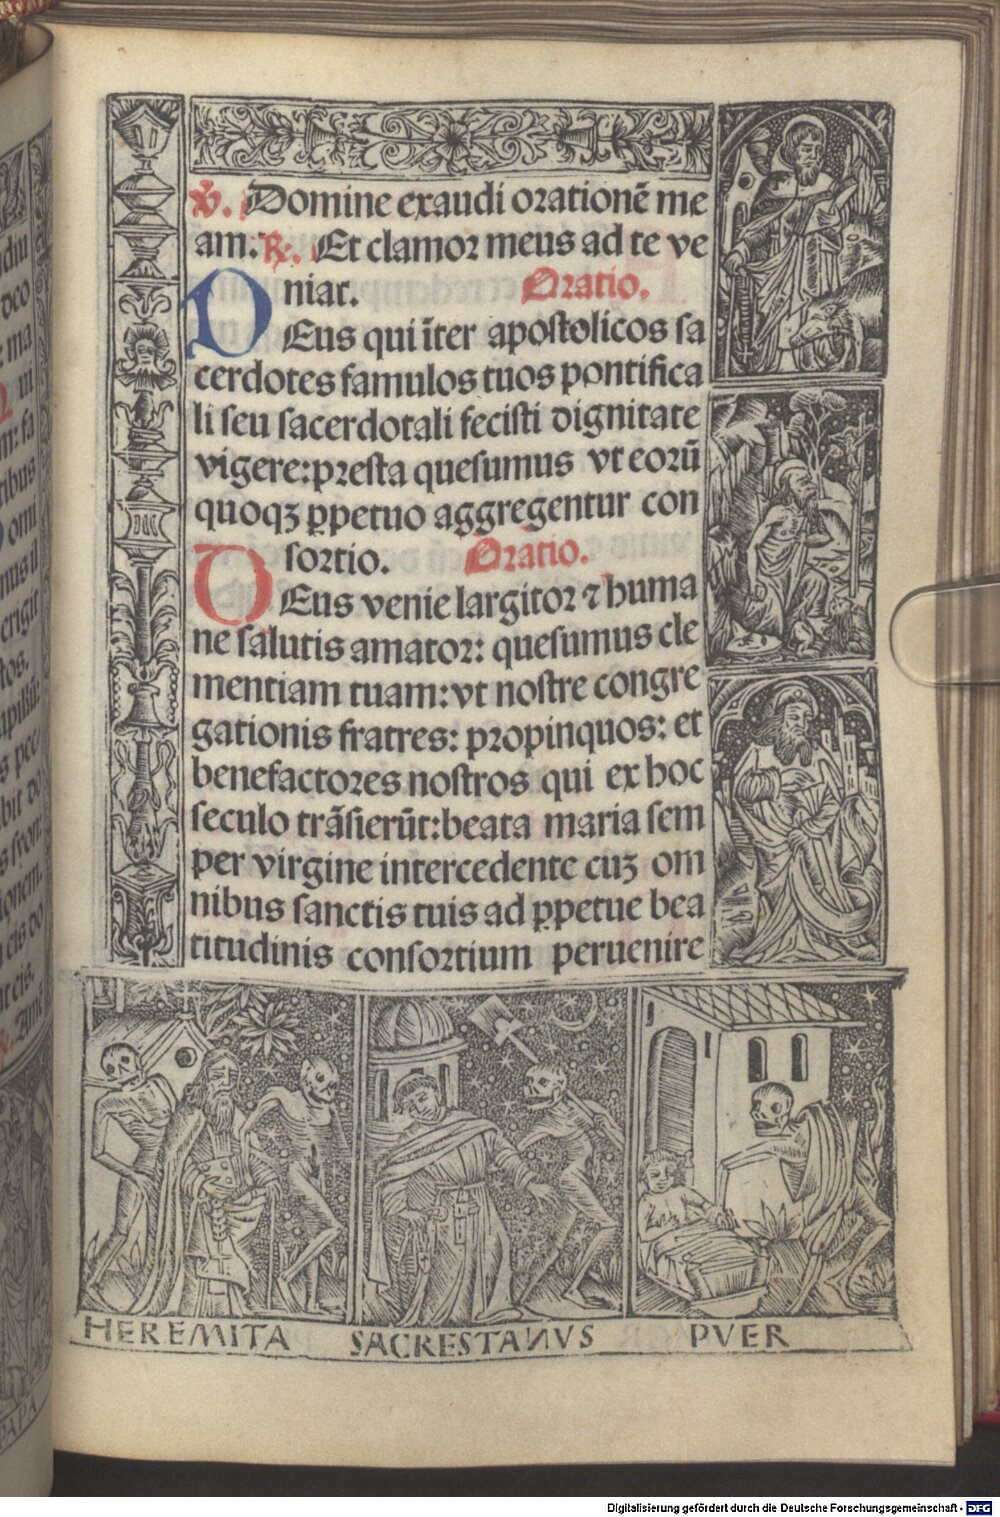 v. Domine exaudi orationē me
am: R. Et clamor meus ad te ve
niat. Oratio.
DEus qui īter apostolicos sa
cerdotes famulos tuos pontifica
li seu sacerdotali fecisti dignitate
vigere: presta quesumus vt eorū
quoqꝫ ꝑpetuo aggregentur con
sortio. Oratio.
DEus venie largitor ⁊ huma
ne salutis amator: quesumus cle
mentiam tuam: vt nostre congre
gationis fratres: propinquos: et
benefactores nostros qui ex hoc
seculo trāsierūt: beata maria sem
per virgine intercedente cuꝫ om
nibus sanctis tuis ad ꝑpetue bea
titudinis consortium peruenire
HEREMITA SACRESTANVS PVER
PAPA
Digitalisierung gefördert durch die Deutsche Forschungsgemeinschaft - DFG